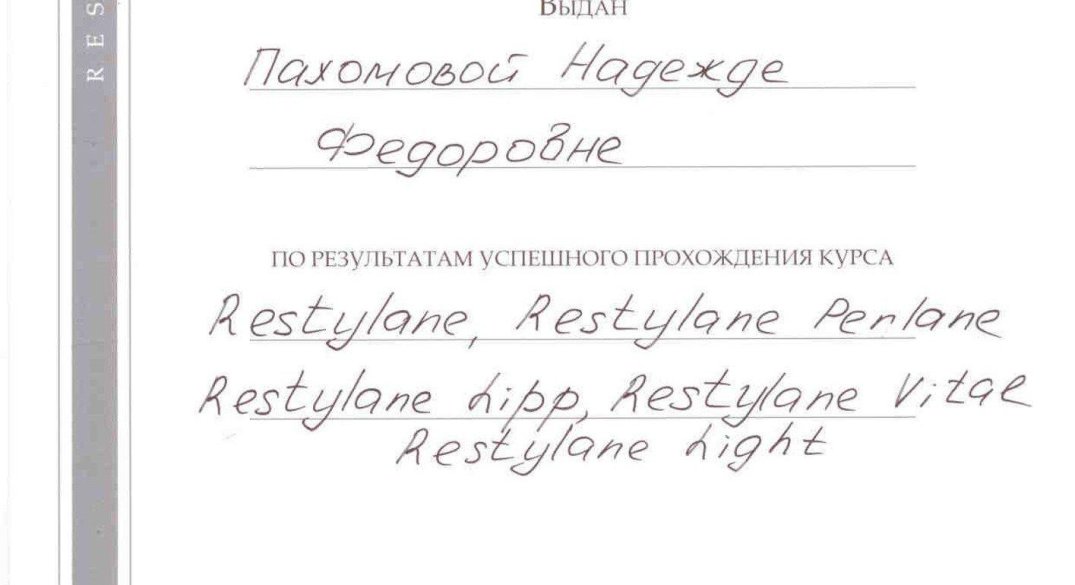 RES
Выдан
Пахомовой Надежде
Федоровне
по результатам успешного прохождения курса
Restylane, Restylane Perlane
Restylane Lipp, Restylane Vital
Restylane Light